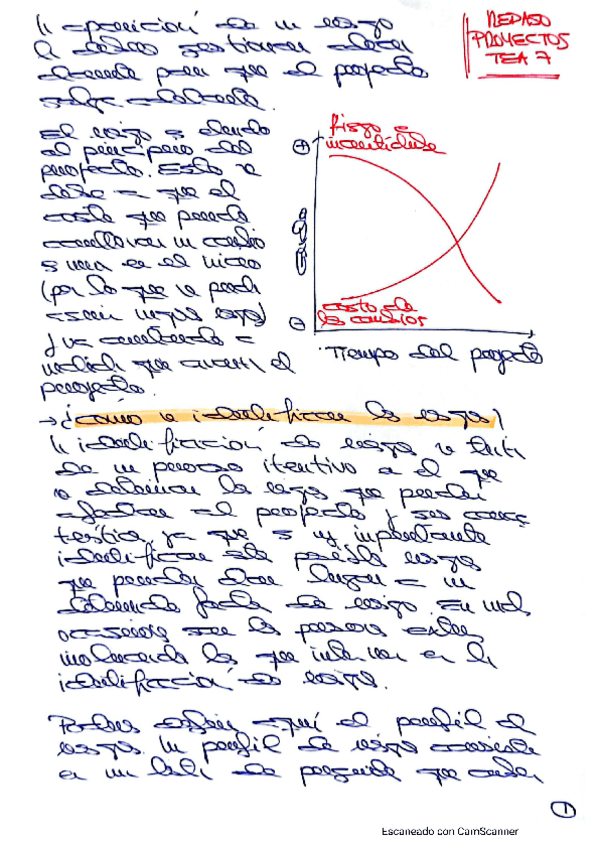 REPASO
PROYECTOS
TEA 7
La aparición de un riesgo
que el proyecto
salga adelante.
El riesgo es elevado
al principio del
proyecto. Esto se
debe a que el
coste que puede
conllevar un cambio
es menor en el inicio
(por lo que se puede
asumir mayor riesgo)
y va aumentando a
medida que avanza el
proyecto.
Riesgo e
incertidumbre
+
-
coste de
los cambios
Tiempo del proyecto
→ ¿Cómo se identifican los riesgos?
La identificación de riesgos se trata
de un proceso iterativo en el que
se determinan los riesgos que pueden
afectar al proyecto y sus carac
terísticas, ya que es muy importante
identificar posibles riesgos
que puedan dar lugar a un
de riesgo. En
ocasiones son las personas
involucradas las que intervienen en la
identificación de riesgos.
Podemos definir aquí el perfil del
riesgo. Un perfil de riesgo consiste
en una lista de preguntas que
1
Escaneado con CamScanner